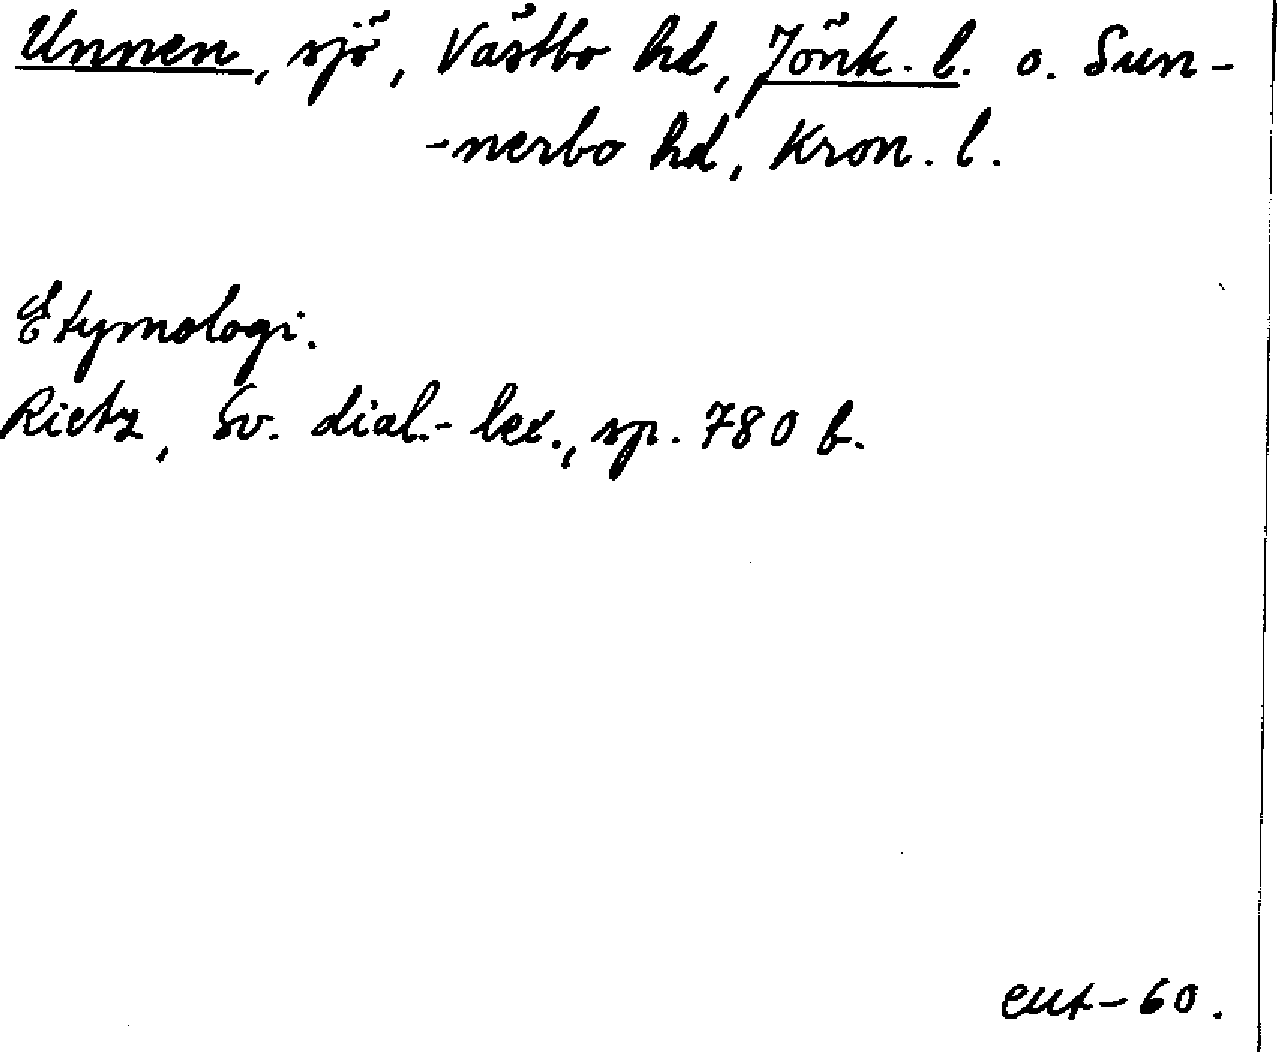 Unnen, sjö, Västbo hd, Jönk. l. o. Sun-
-nerbo hd, Kron. l.
Etymologi.
Rietz, Sv. dial.-lex., sp. 780 b.
eut-60.